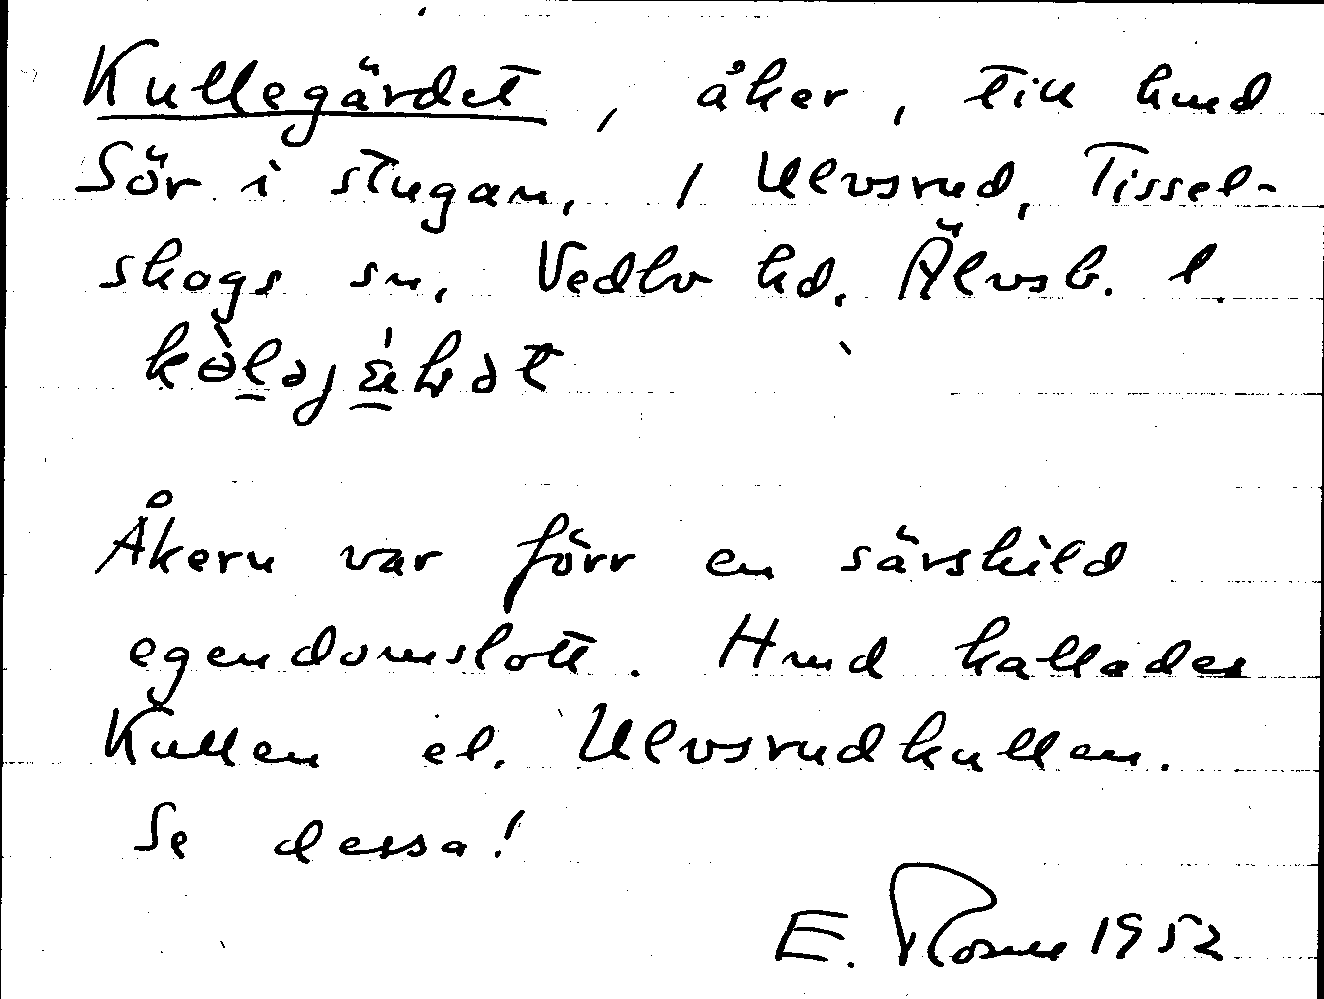 Kullegärdet, åker, till hmd
Sör i stugan, 1 Ulvsrud, Tissel-
skogs sn, Vedbo hd, Älvsb. l.
Åkern var förr en särskild
egendomslott. Hmd kallades
Kullen el. Ulvsrudkullen.
Se dessa!
E. Rosell 1952